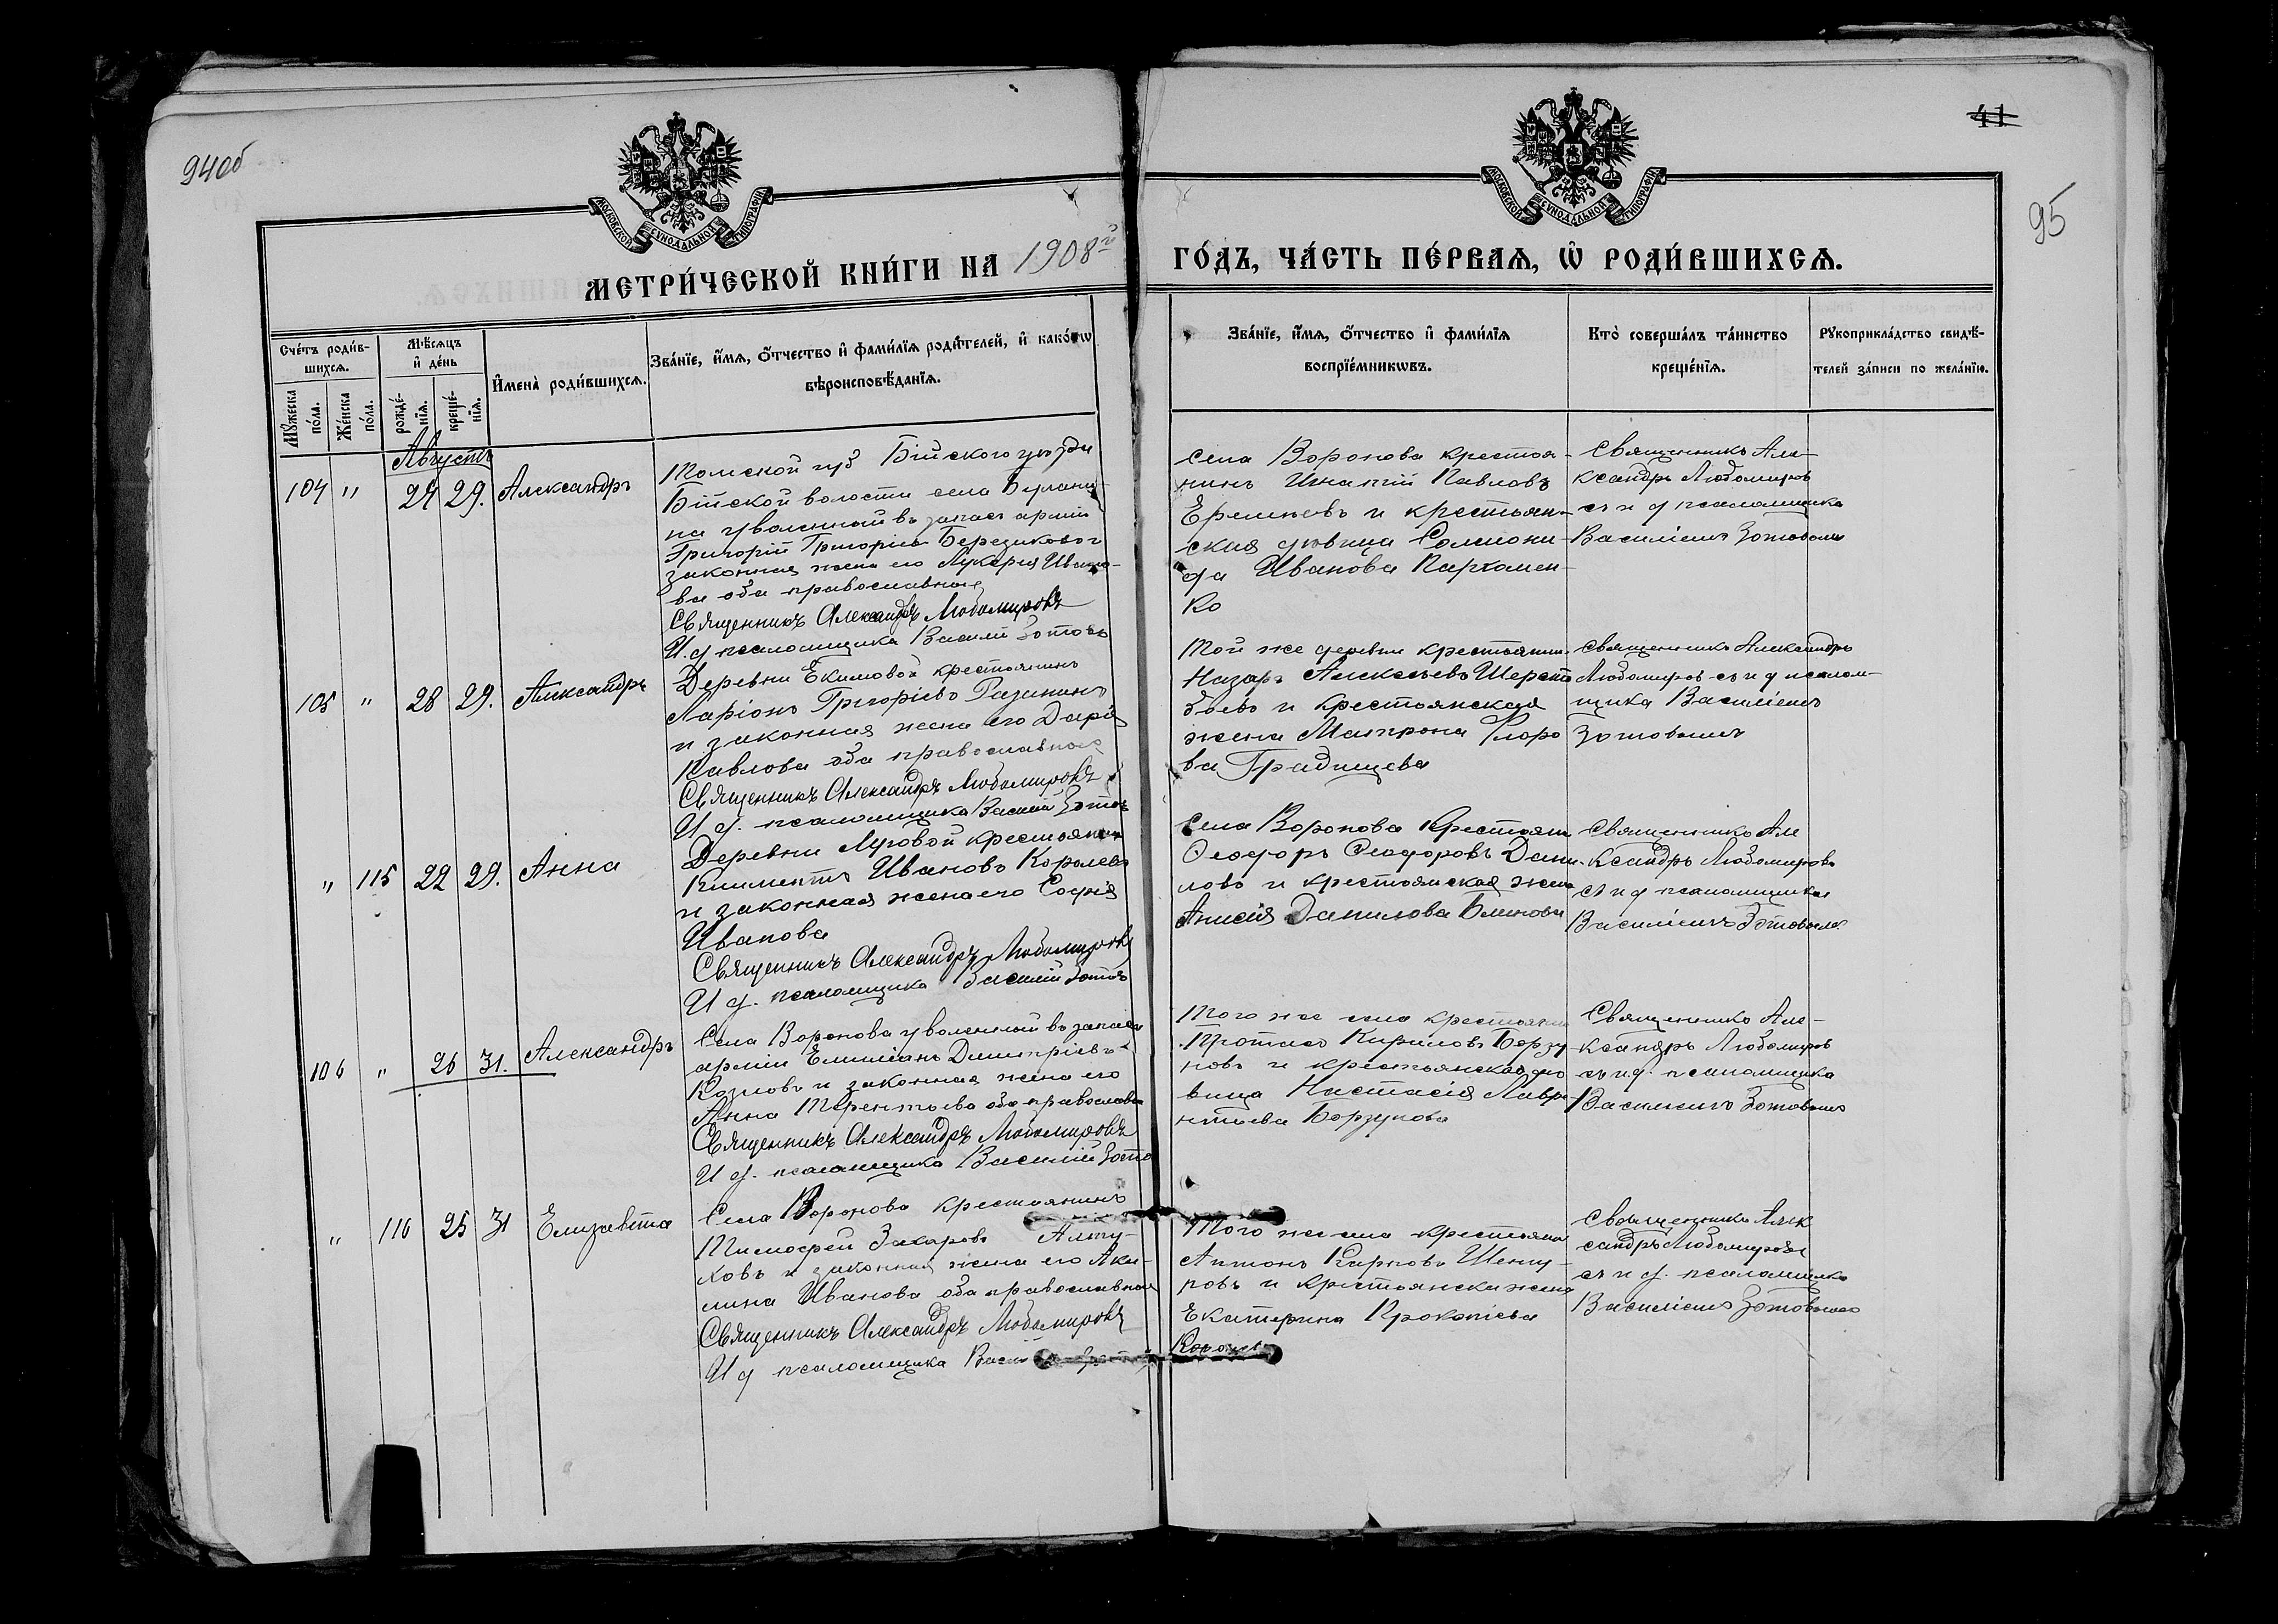 94об
41
95
МОСКОВСКОЙ СѴНОДАЛЬНОЙ ТИПОГРАФІИ
МОСКОВСКОЙ СѴНОДАЛЬНОЙ ТИПОГРАФІИ
МЕТРИ́ЧЕСКОЙ КНИ́ГИ НА 1908й
ГО́ДЪ, ЧА́СТЬ ПЕ́РВАѦ, Ѡ РОДИ́ВШИХСѦ.
Сче́тъ роди́в-
шихсѧ.
Мꙋ́жеска по́ла.
Же́нска по́ла.
Мѣ́сѧцъ
и҆ де́нь
рожде́-нїѧ.
креще́-нїѧ.
И҆мена̀ роди́вшихсѧ.
Зва́нїе, и҆́мѧ, ѻ҆́тчество и҆ фами́лїѧ роди́телей, и҆ како́гѡ
вѣроисповѣ́данїѧ.
Зва́нїе, и҆́мѧ, ѻ҆́тчество и҆ фами́лїѧ
воспрїе́мникѡвъ.
Кто̀ соверша́лъ та́инство
креще́нїѧ.
Рꙋкоприкла́дство свидѣ́-
телей за́писи по жела́нїю.
Августъ
104 " 24 29. Александръ
Томской губ Бійского уѣзда
Бійской волости села
на уволенный въ запасъ арміи
Григорій Григорьевъ Березиковъ и
законная жена его Лукерія Ивано-
ва оба православные
Священникъ Александръ Любомировъ
И.д псаломщика Василій Зотовъ
Села Воронова крестья-
нинъ Игнатій Павловъ
Еремѣевъ и крестьян-
ская дѣвица Соломони-
да Иванова Пархомен-
ко
Священникъ Але-
ксандръ Любомировъ
съ и д псаломщика
Василіемъ Зотовымъ
105 " 28 29. Александръ
Деревни Екимовой крестьянинъ
Ларіонъ Григорьевъ Разинкинъ
и законная жена его Дарія
Павлова оба православные
Священникъ Александръ Любомировъ
И д. псаломщика Василій Зотовъ
Той же деревни крестьянин
Назаръ Алексѣевъ Шерсто
боевъ и крестьянская
жена Матрона Флоро
ва Градищева
Священникъ Александръ
Любомировъ съ и д псалом-
щика Василіемъ
Зотовымъ
" 115 22 29. Анна
Деревни Луговой крестьянин
Климентъ Ивановъ Королевъ
и законная жена его Софія
Иванова
Священникъ Александръ Любомировъ
И д. псаломщика Василій Зотовъ
Села Воронова Крестьян
Ѳеодоръ Ѳеодоровъ Дани-
ловъ и крестьянская жена
Анисія Данилова Блинова
Священникъ Але
ксандръ Любомировъ
съ и д псаломщика
Василіемъ Зотовымъ
106 " 26 31. Александръ
Села Воронова уволенный въ запасъ
арміи Емиліанъ Димитріевъ
Козловъ и законная жена его
Анна Терентьева оба православн
Священникъ Александръ Любомировъ
И д. псаломщика Василій Зото
Того же села крестьянин
Протасъ Кириловъ Борзу-
новъ и крестьянская дѣ
вица Настасія Лавре-
нтьева Борзунова
Священникъ Але-
ксандръ Любомировъ
съ и д. псаломщика
Василіемъ Зотовымъ
" 116 25 31 Елизавета
Села Воронова крестьянинъ
Тимофей Захаровъ Алту-
ховъ и законная жена его Аку-
лина Иванова оба православные
Священникъ Александръ Любомировъ
И д псаломщика
Того же села крестьянин
Антонъ Карповъ
ровъ и крестьянска жена
Екатерина Прокопіева
Священникъ Алек
сандръ Любомировъ
съ и д. псаломщика
Василіемъ Зотовымъ